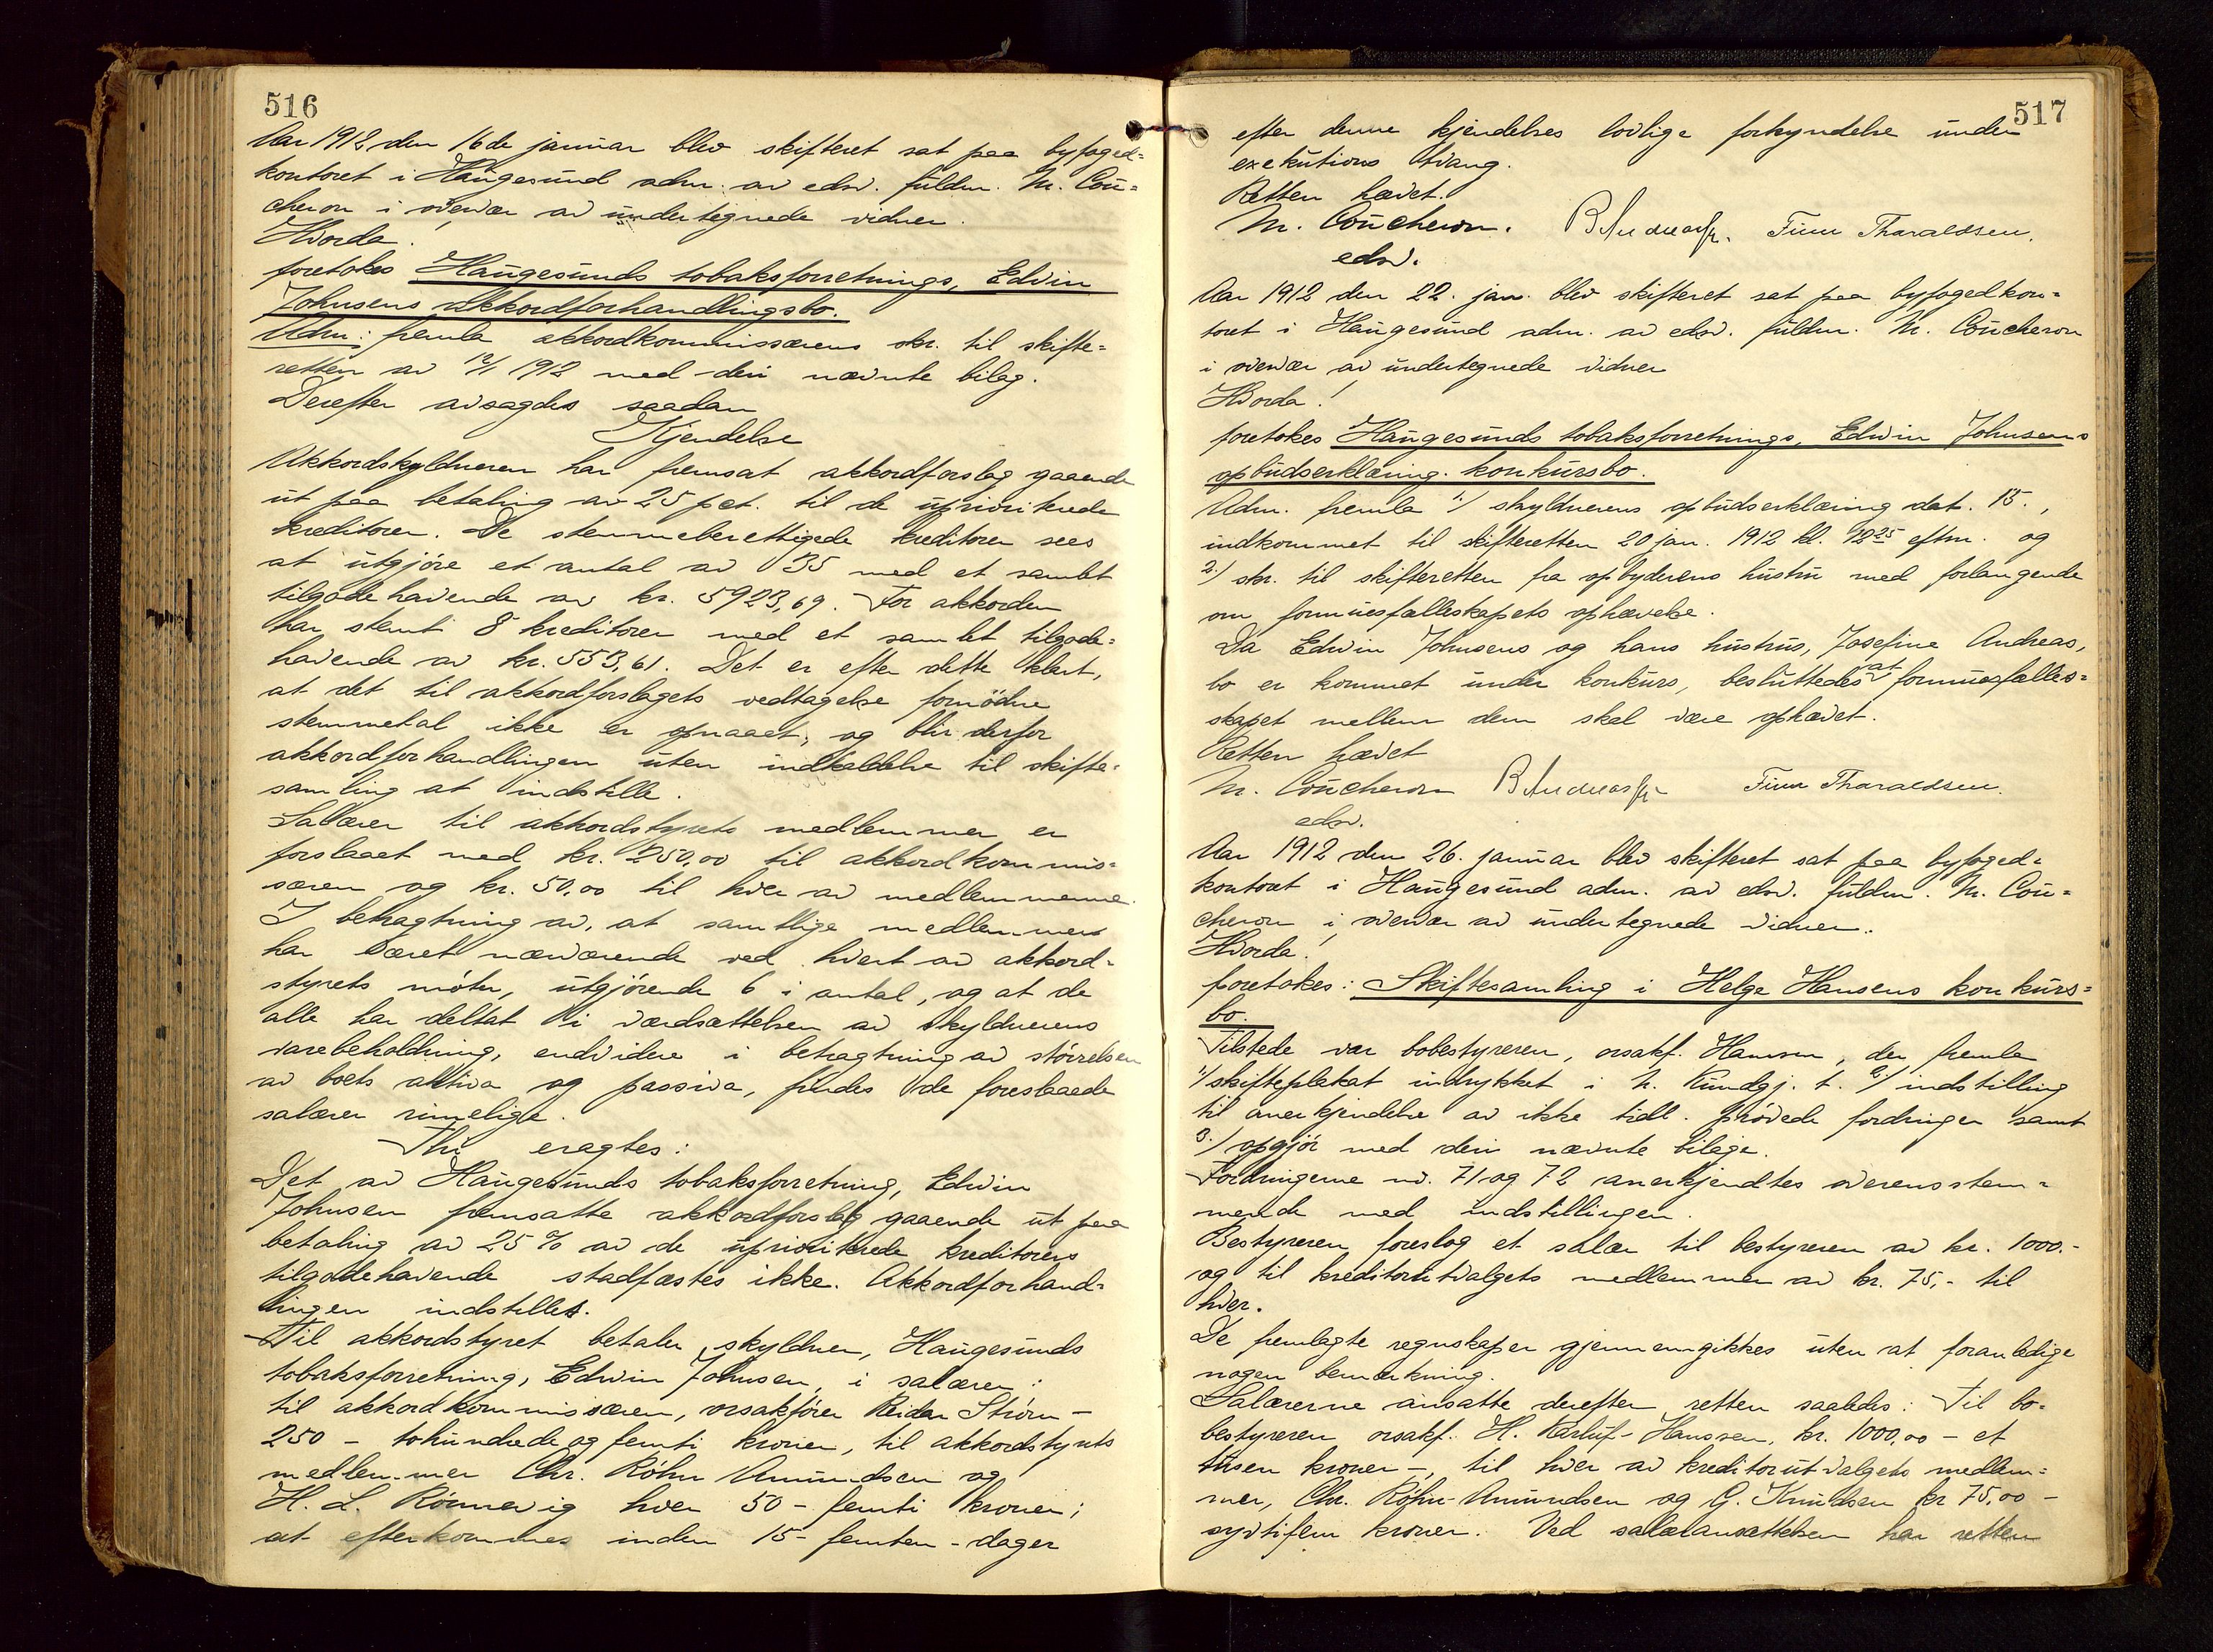 516
Aar 1912 den 16de januar blev skifteret sat paa byfoged=
kontoret i Haugesund adm. av edsv. fuldm. M. Cou=
cheron i overvær av undertegnede vidner.
Hvorda!
foretokes Haugesunds tobaksforretnings, Edwin
Johnsens akkordforhandlingsbo.
Adm. fremla akkordkommissærens skr. til skifte=
retten av 12/1 1912 med deri nævnte bilag.
Derefter avsagdes saadan
Kjendelse
Akkordskyldneren har fremsat akkordforslag gaaende
ut paa betaling av 25 pct. til de uprioriterede
kreditorer. De stemmeberettigede kreditorer sees
at utgjøre et antal av 35 med et samlet
tilgodehavende av kr. 5923,69. For akkorden
har stemt 8 kreditorer med et samlet tilgode=
havende av kr. 553,61. Det er efter dette klart,
at det til akkordforslagets vedtagelse fornødne
stemmetal ikke er opnaaet, og blir derfor
akkordforhandlingen uten indkaldelse til skifte=
samling at indstille.
Salærer til akkordstyrets medlemmer er
forslaaet med kr. 250,00 til akkordkommis=
særen og kr. 50,00 til hver av medlemmerne.
I betragtning av, at samtlige medlemmer
har været nærværende ved hvert av akkord=
styrets møter, utgjørende 6 i antal, og at de
alle har deltat i værdsættelsen av skyldnerens
varebeholdning, endvidere i betragtning av størrelsen
av boets aktiva og passiva, findes de foreslaaede
salærer rimelige.
Thi eragtes:
Det av Haugesunds tobaksforretning, Edwin
Johnsen fremsatte akkordforslag gaaende ut paa
betaling av 25 % av de uprioriterede kreditorers
tilgodehavende stadfæstes ikke. Akkordforhand=
lingen indstilles.
Til akkordstyret betaler skyldner, Haugesunds
tobaksforretning, Edwin Johnsen, i salærer:
til akkordkommissæren, orsakfører Reidar Strøm -
250 - tohundrede og femti kroner, til akkordstyrets
medlemmer Chr. Røhn Amundsen og
H. L. Rønnevig hver 50 - femti kroner;
at efterkommes inden 15 - femten - dager
517
efter denne kjendelses lovlige forkyndelse under
exekutions tvang.
Retten hævet.
M. Coucheron. B Andreas jr. Finn Tharaldsen.
edsv.
Aar 1912 den 22. jan. blev skifteret sat paa byfogedkon=
toret i Haugesund adm. av edsv. fuldm. M. Coucheron
i overvær av undertegnede vidner
Hvorda!
foretokes Haugesunds tobaksforretnings, Edwin Johnsens
opbudserklæring. konkursbo.
Adm. fremla 1./ skyldnerens opbudserklæring dat. 15.,
indkommet til skifteretten 20 jan. 1912 kl. 12 25 eftm. og
2./ skr. til skifteretten fra opbyderens hustru med forlangende
om formuesfælleskapets ophævelse.
Da Edwin Johnsens og hans hustrus, Josefine Andreas,
bo er kommet under konkurs, besluttedes at formuesfælles=
skapet mellem dem skal være ophævet.
Retten hævet
M. Coucheron B Andreas jr Finn Tharaldsen.
edsv.
Aar 1912 den 26. januar blev skifteret sat paa byfoged=
kontoret i Haugesund adm. av edsv. fuldm. M. Cou=
cheron i overvær av undertegnede vidner.
Hvorda!
foretokes: Skiftesamling i Helge Hansens konkurs=
bo.
Tilstede var bobestyreren, orsakf. Hansen, der fremla
1./ skifteplakat indrykket i N. Kundgj. t. 2./ indstilling
til anerkjendelse av ikke tidl. prøvede fordringer samt
3./ opgjør med deri nævnte bilage.
Fordringerne nr. 71 og 72 anerkjendtes overensstem=
mende med indstillingen.
Bestyreren foreslog et salær til bestyreren av kr. 1000.-
og til kreditorutvalgets medlemmer av kr. 75,- til
hver.
De fremlagte regnskaper gjennemgikkes uten at foranledige
nogen bemerkning.
Salærerne ansatte derefter retten saaledes: Til bo=
bestyreren orsakf. H. Karluf-Hanssen, kr. 1000,00 - et
tusen kroner -, til hver av kreditorutvalgets medlem=
mer, Chr. Røhn-Amundsen og G. Knudsen kr 75,00 -
syvtifem kroner. Ved salæransættelsen har retten